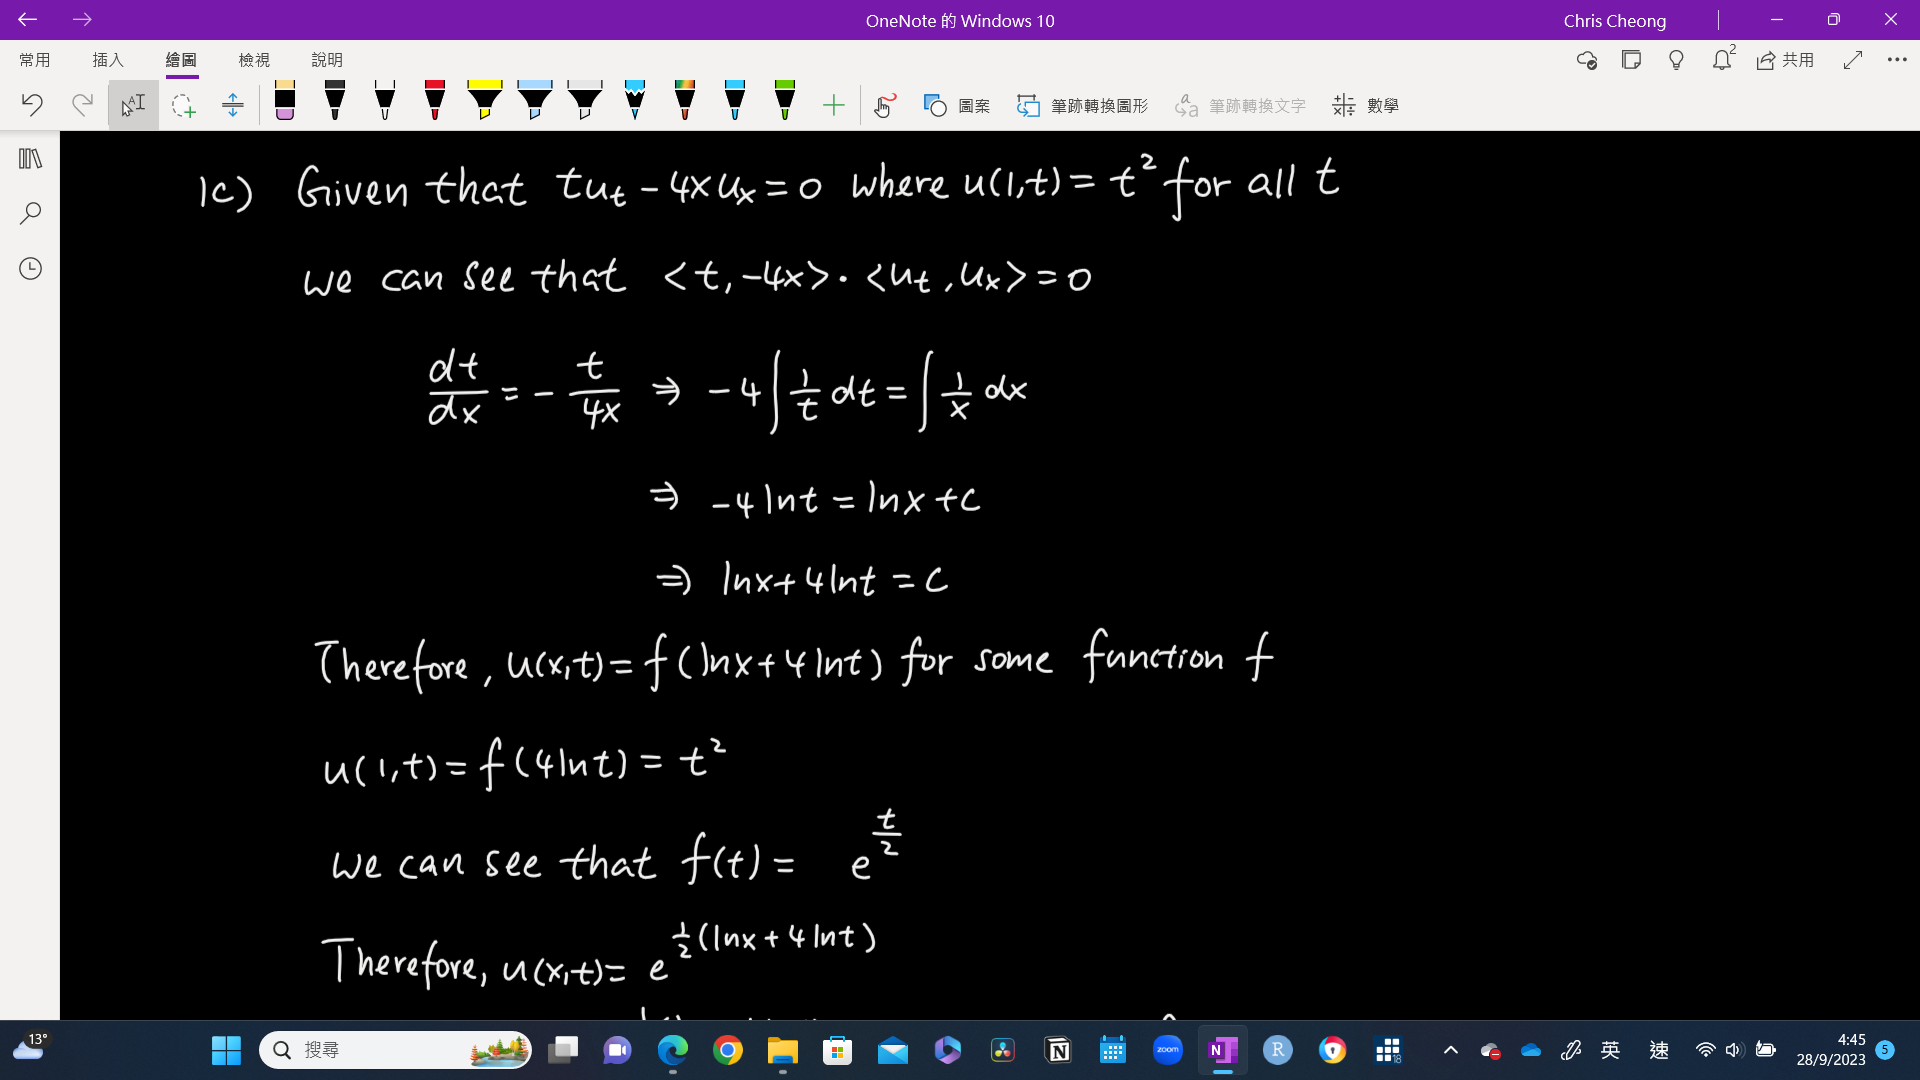 OneNote 的 Windows 10
Chris Cheong
常用 插入 繪圖 檢視 說明
2
共用
圖案 筆跡轉換圖形 筆跡轉換文字 數學
1c) Given that tu_t - 4xu_x = 0 where u(1,t) = t² for all t
we can see that <t, -4x> · <u_t, u_x> = 0
dt/dx = - t/4x ⇒ -4∫ 1/t dt = ∫ 1/x dx
⇒ -4 ln t = ln x + c
⇒ ln x + 4 ln t = c
Therefore, u(x,t) = f(ln x + 4 ln t) for some function f
u(1,t) = f(4 ln t) = t²
we can see that f(t) = e^(t/2)
Therefore, u(x,t) = e^(1/2 (ln x + 4 ln t))
13°
搜尋
zoom
N
R
18
英
速
4:45
28/9/2023
5